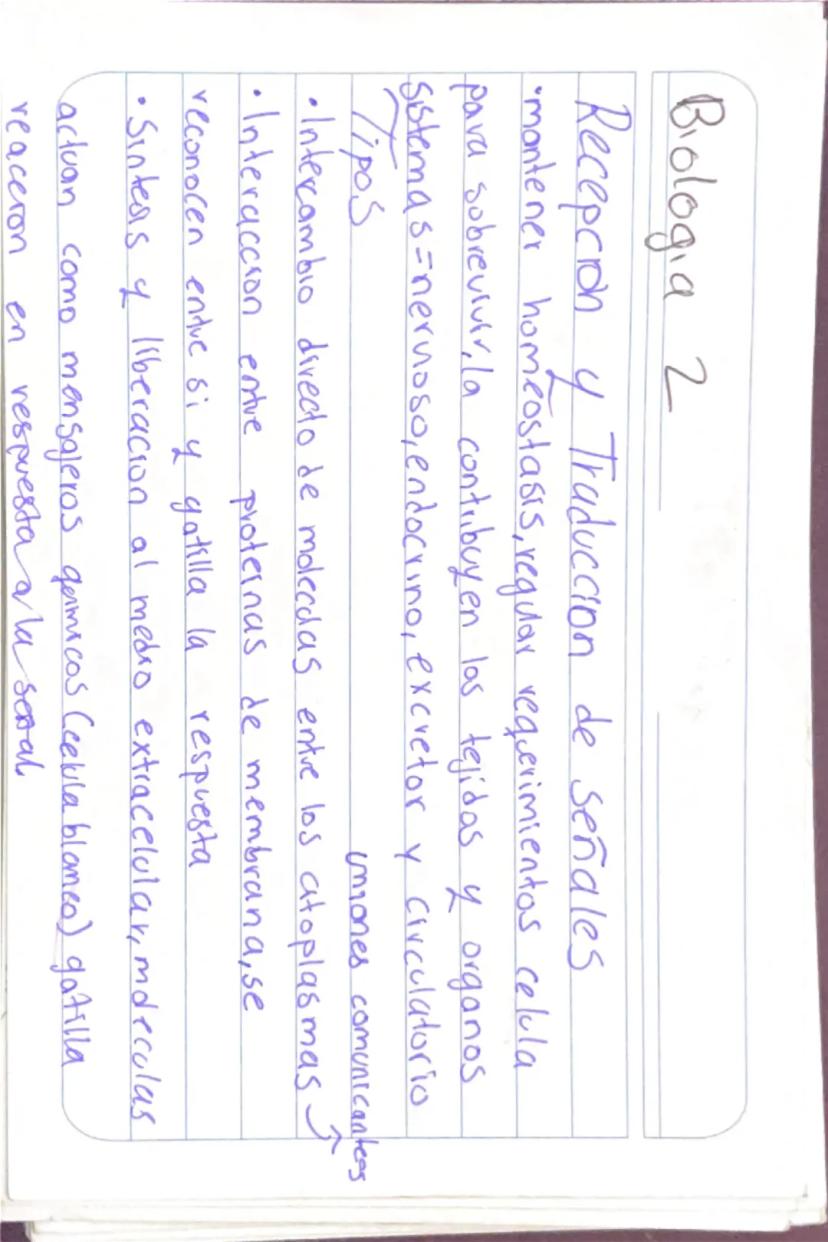 Biologia 2
Recepcion y Traduccion de señales
• mantener homeostasis, regular requerimientos celula
para sobrevivir, la contribuyen los tejidos y organos
sistemas = nervoso, endocrino, excretor y circulatorio
Tipos
uniones comunicantes
• Intercambio directo de moleculas entre los citoplasmas →
• Interaccion entre proteinas de membrana, se
reconocen entre si y gatilla la respuesta
• Sintesis y liberacion al medio extracelular, moleculas
actuan como mensajeros quimicos (celula blanco) gatilla
reaccion en respuesta a la señal